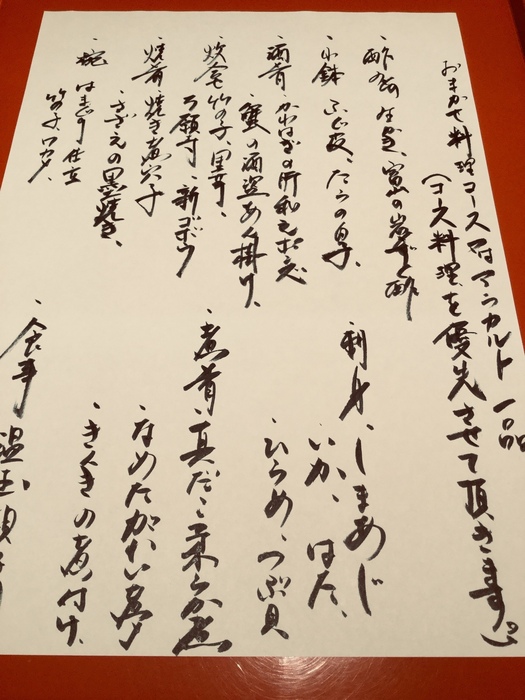 おまかせ料理コース又はアラカルト一品
(コース料理を優先させて頂きます。)
・酢の物 生がき、富山の岩 酢
・小鉢 ふぐ皮、たらの白子、
・酒肴 かわはぎの肝和え
蟹の酒盗あん掛け、
・炊合 竹の子、里芋、
万願寺、新ゴボウ
・焼肴 焼き 穴子
さざえの 焼き、
・椀 はまぐり仕立
竹の子、ワカメ、
・刺身、しまあじ
いか、はた、
ひらめ、つぶ貝
・煮肴 真だこ柔らか煮
・なめたがれい
・きんきの煮付け、
・食事
温玉